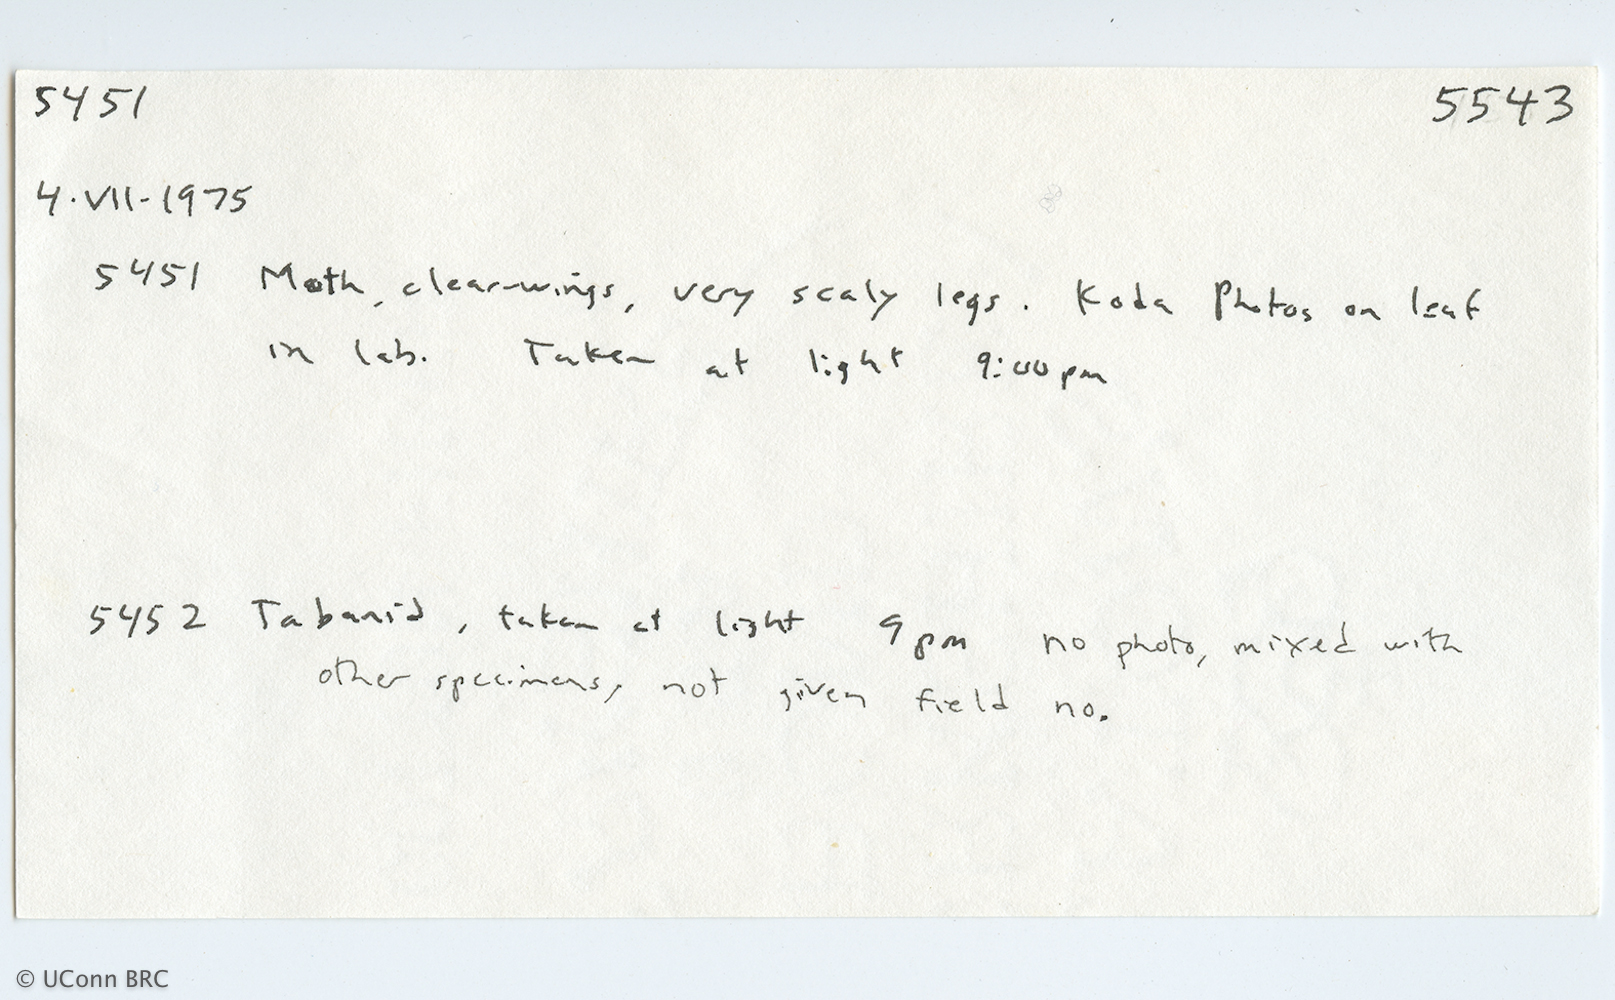 5451 5543
4·VII-1975
5451 Moth, clear-wings, very scaly legs. Koda Photos on leaf
in lab. Taken at light 9:00pm
5452 Tabanid, taken at light 9pm no photo, mixed with
other specimens, not given field no.
© UConn BRC